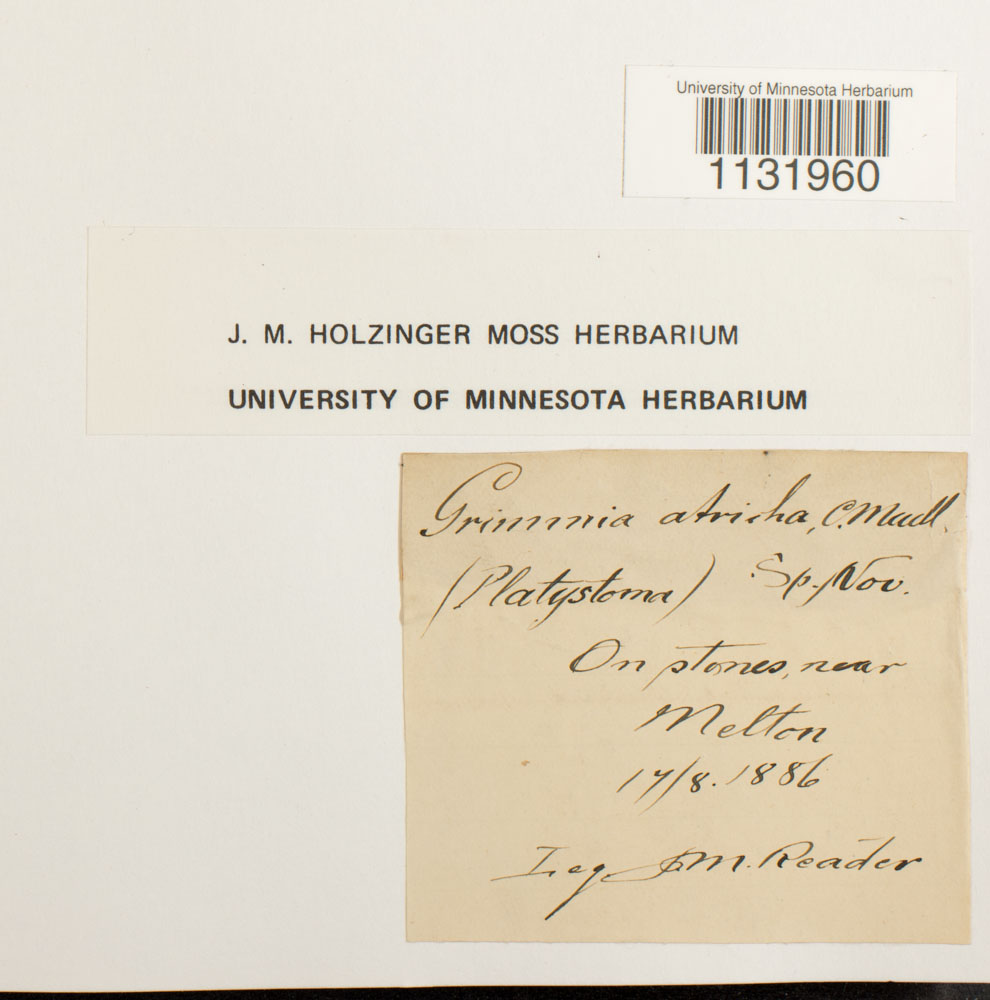 University of Minnesota Herbarium
1131960
J. M. HOLZINGER MOSS HERBARIUM
UNIVERSITY OF MINNESOTA HERBARIUM
Grimmia atricha, C. Muell.
(Platystoma) Sp. Nov.
On stones, near
Melton
17/8. 1886
Leg. F. M. Reader